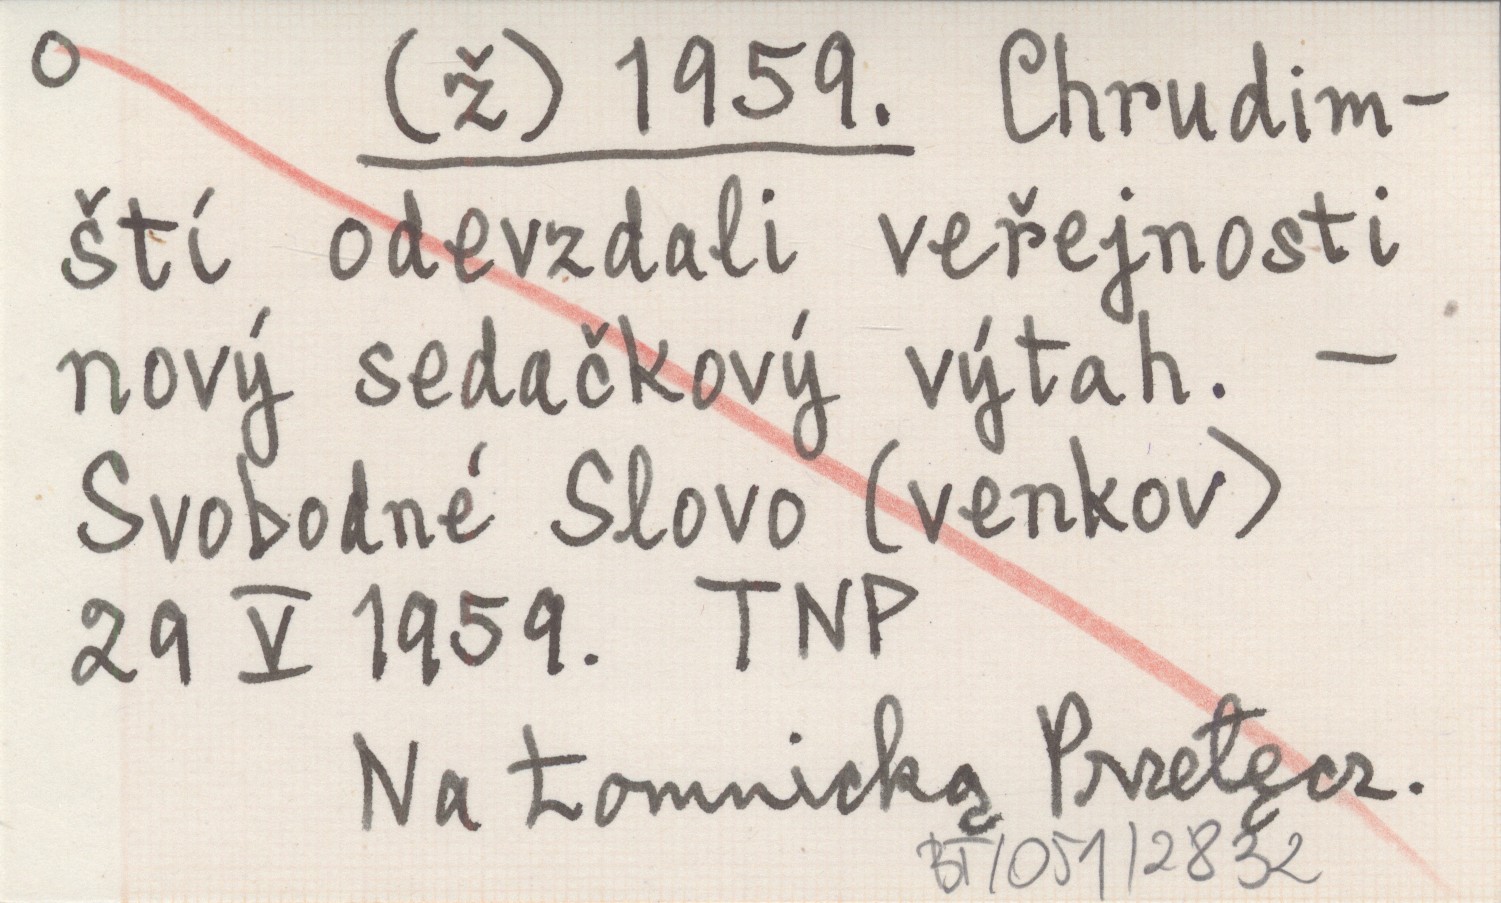 O (ž) 1959. Chrudim-
ští odevzdali veřejnosti
nový sedačkový výtah. —
Svobodné Slovo (venkov)
29 V 1959. TNP
Na Łomnicką Przełęcz.
BT/051/2832